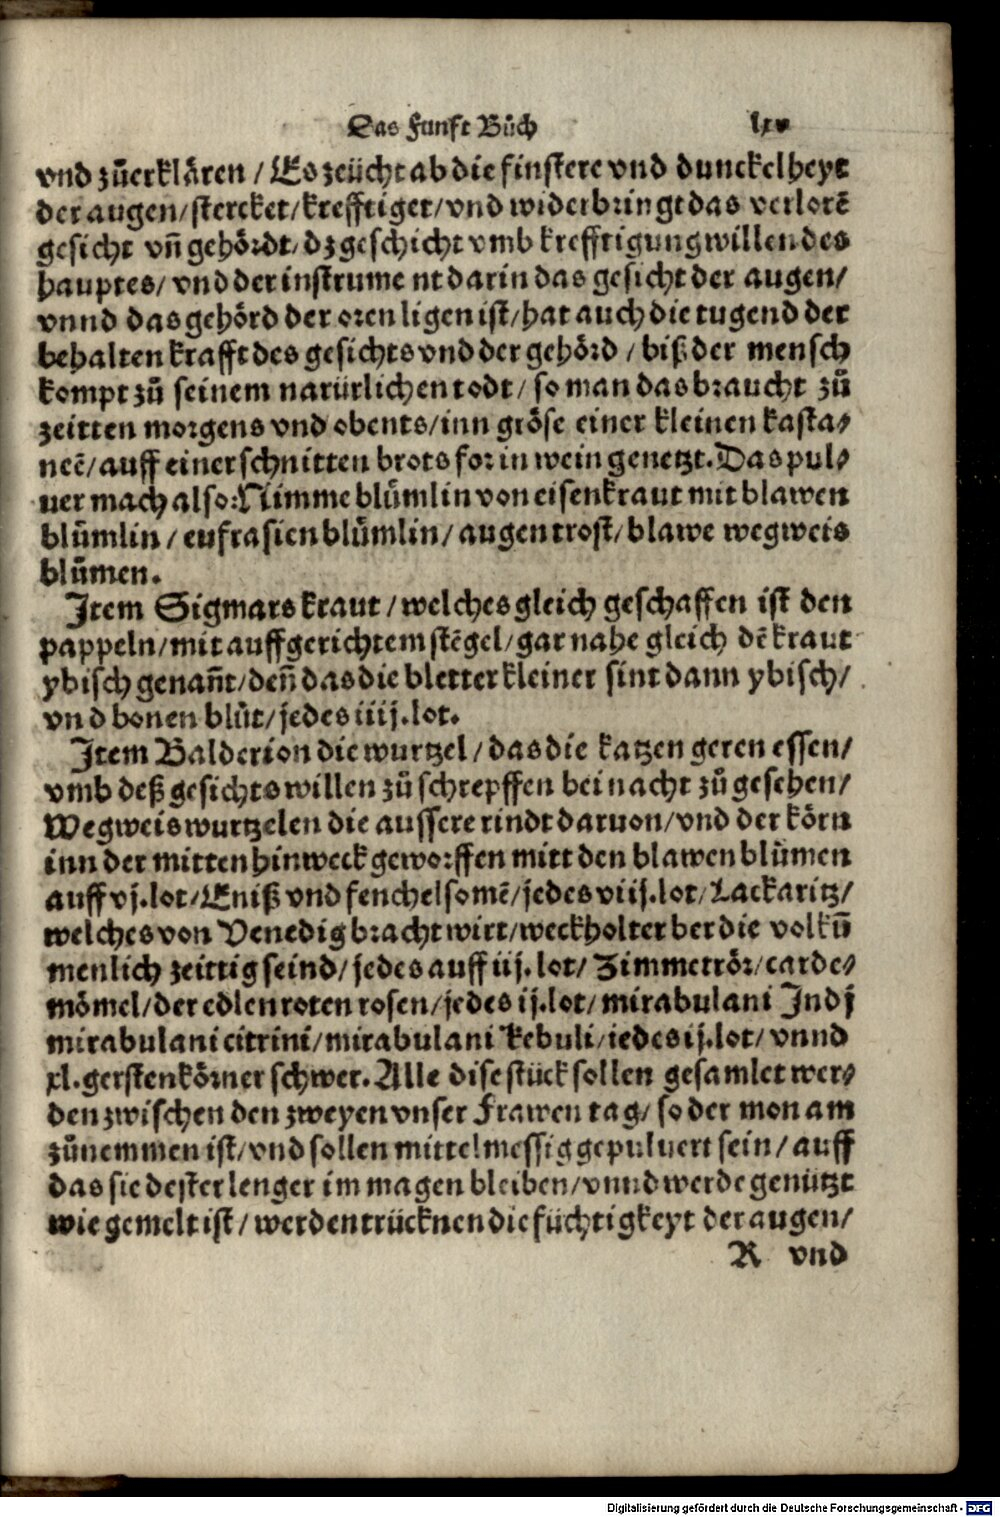 Das Funfft Bůch lxv
vnd zůerklåren / Es zeücht ab die finstere vnd dunckelheyt
der augen/stercket/krefftiget/vnd widerbringt das verlorē
gesicht vñ gehördt/dz geschicht vmb krefftigung willen des
hauptes/ vnd der instrume nt darin das gesicht der augen/
vnnd das gehörd der oren ligen ist/hat auch die tugend der
behalten krafft des gesichts vnd der gehörd / biß der mensch
kompt zů seinem natürlichen todt/ so man das braucht zů
zeitten morgens vnd obents/inn gröse einer kleinen kasta⸗
neē/auff einer schnitten brots for in wein genetzt. Das pul⸗
uer mach also: Nimme blůmlin von eisenkraut mit blawen
blůmlin / eufrasien blůmlin/augentrost/blawe wegweis
blůmen.
Item Sigmars kraut /welches gleich geschaffen ist den
pappeln/mit auffgerichtem stēgel/gar nahe gleich dē kraut
ybisch genañt/deñ das die bletter kleiner sint dann ybisch/
vnd bonen blůt/jedes iiij.lot.
Item Balderion die wurtzel/das die katzen geren essen/
vmb deß gesichts willen zů schrepffen bei nacht zů gesehen/
Wegweis wurtzelen die aussere rindt daruon/vnd der körn
inn der mitten hinweck geworffen mitt den blawen blůmen
auff vj.lot/Eniß vnd fenchelsomē/jedes viij.lot/Lackaritz/
welches von Venedig bracht wirt/weckholterber die volkū
menlich zeittig seind/jedes auff iij.lot/ Zimmetrör/carde⸗
mömel/der edlen roten rosen/jedes ij.lot/mirabulani Indj
mirabulani citrini/mirabulani kebuli/iedes ij.lot/ vnnd
xl.gerstenkörner schwer. Alle dise stück sollen gesamlet wer⸗
den zwischen den zweyen vnser Frawen tag/ so der mon am
zůnemmen ist/vnd sollen mittelmessig gepuluert sein/ auff
das sie dester lenger im magen bleiben/vnnd werde genützt
wie gemelt ist/ werden trücknen die füchtigkeyt der augen/
R vnd
Digitalisierung gefördert durch die Deutsche Forschungsgemeinschaft - DFG